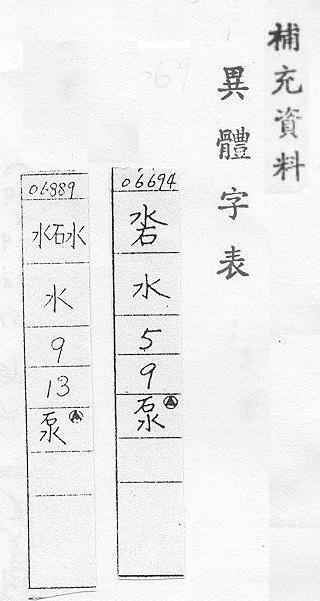 補充資料
異體字表
06694
⿱水石
水
5
9
泵
06889
⿲水石水
水
9
13
泵